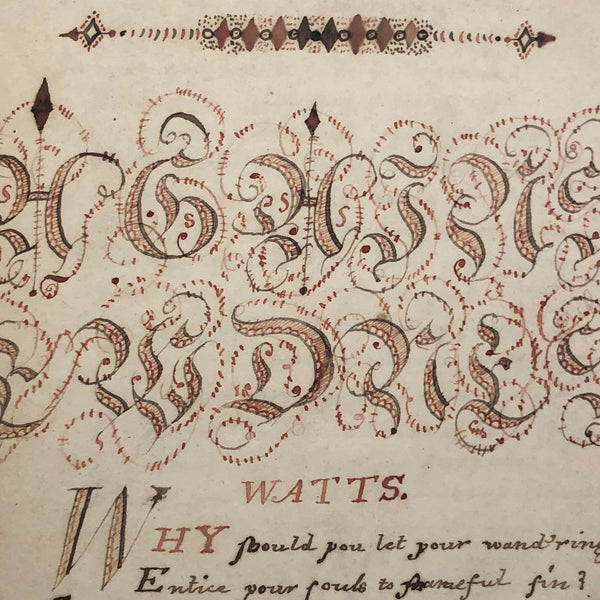 AGAINS
EWDNES
WATTS.
WHY ſhould you let your wand'ring
Entice your ſouls to ſhameful ſin?